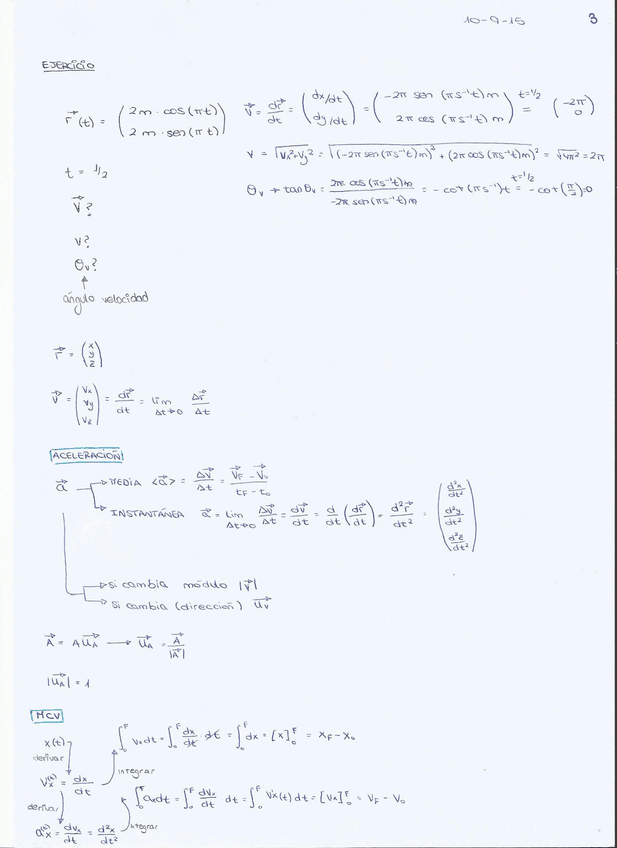 10-9-15 3
EJERCICIO
r⃗(t) = (2m · cos(πt) / 2m · sen(πt))
v⃗ = dr⃗/dt = (dx/dt / dy/dt) = (-2π sen (πs⁻¹t)m / 2π cos (πs⁻¹t)m) t=1/2 = (-2π / 0)
t = 1/2
v = √(Vx²+Vy²) = √((-2π sen(πs⁻¹t)m)² + (2π cos(πs⁻¹t)m)²) = √4π² = 2π
θv → tanθv = 2π cos(πs⁻¹t)m / -2π sen(πs⁻¹t)m = -cot(πs⁻¹)t t=1/2 = -cot(π/2)=0
v⃗?
v?
θv?
↑
ángulo velocidad
r⃗ = (x / y / z)
v⃗ = (Vx / Vy / Vz) = dr⃗/dt = lim Δt→0 Δr⃗/Δt
ACELERACIÓN
a⃗ → MEDIA <a⃗> = Δv⃗/Δt = (V⃗F - V⃗0)/(tF - t0)
→ INSTANTÁNEA a⃗ = lim Δt→0 Δv⃗/Δt = dv⃗/dt = d/dt (dr⃗/dt) = d²r⃗/dt² = (d²x/dt² / d²y/dt² / d²z/dt²)
→ Si cambia módulo |v⃗|
→ Si cambia (dirección) u⃗v
A⃗ = A u⃗A → u⃗A = A⃗/|A⃗|
|u⃗A| = 1
MCV
x(t) ∫₀F Vx dt = ∫₀F dx/dt · dt = ∫₀F dx = [x]₀F = XF - X0
derivar
Vx(t) = dx/dt integrar
derivar ∫₀F ax dt = ∫₀F dVx/dt dt = ∫₀F V'x(t) dt = [Vx]₀F = VF - V0
ax(t) = dVx/dt = d²x/dt² integrar